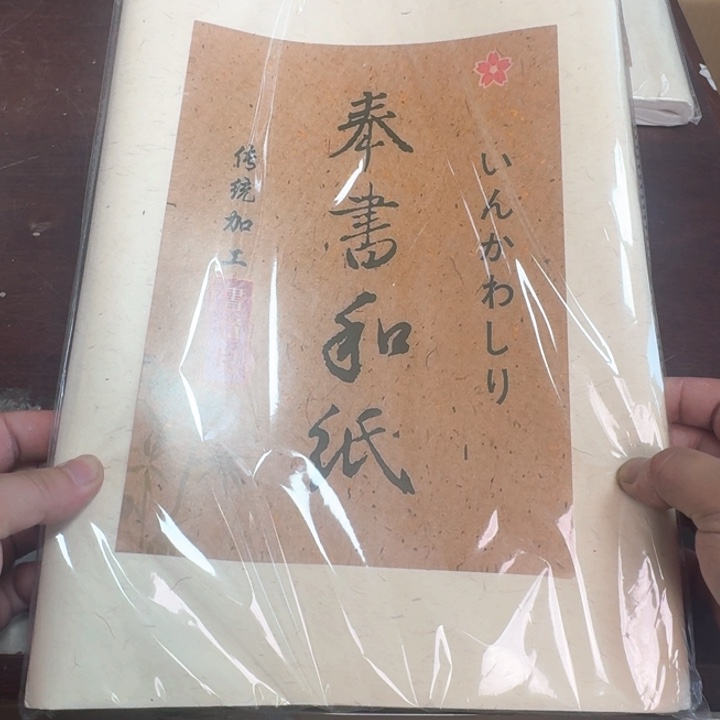 いんかわしり
奉書和紙
传统加工